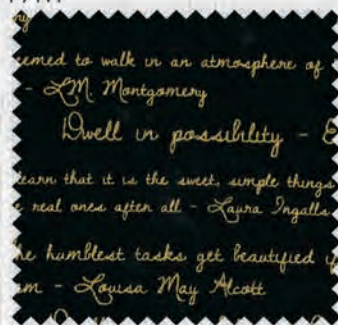 eemed to walk in an atmosphere of
- L.M. Montgomery
Dwell in possibility - E
learn that it is the sweet, simple things
e real ones after all - Laura Ingalls
he humblest tasks get beautified if
em - Louisa May Alcott